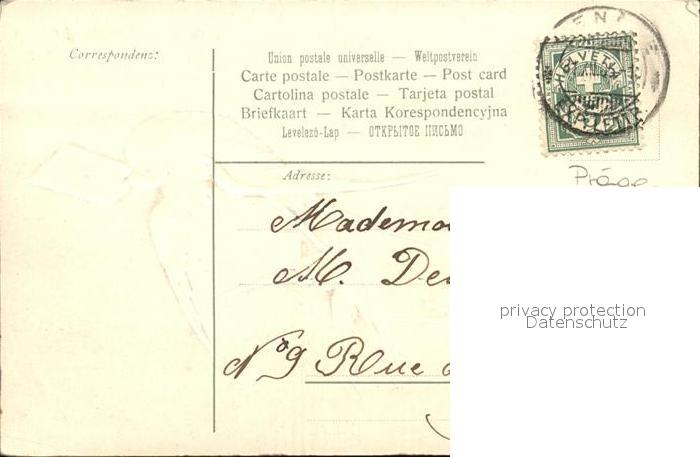 Correspondenz:
Union postale universelle — Weltpostverein
Carte postale — Postkarte — Post card
Cartolina postale — Tarjeta postal
Briefkaart — Karta Korespondencyjna
Levelező-Lap — ОТКРЫТОЕ ПИСЬМО
HELVETIA
Adresse:
Präge
M.
No 9 Rue
privacy protection
Datenschutz